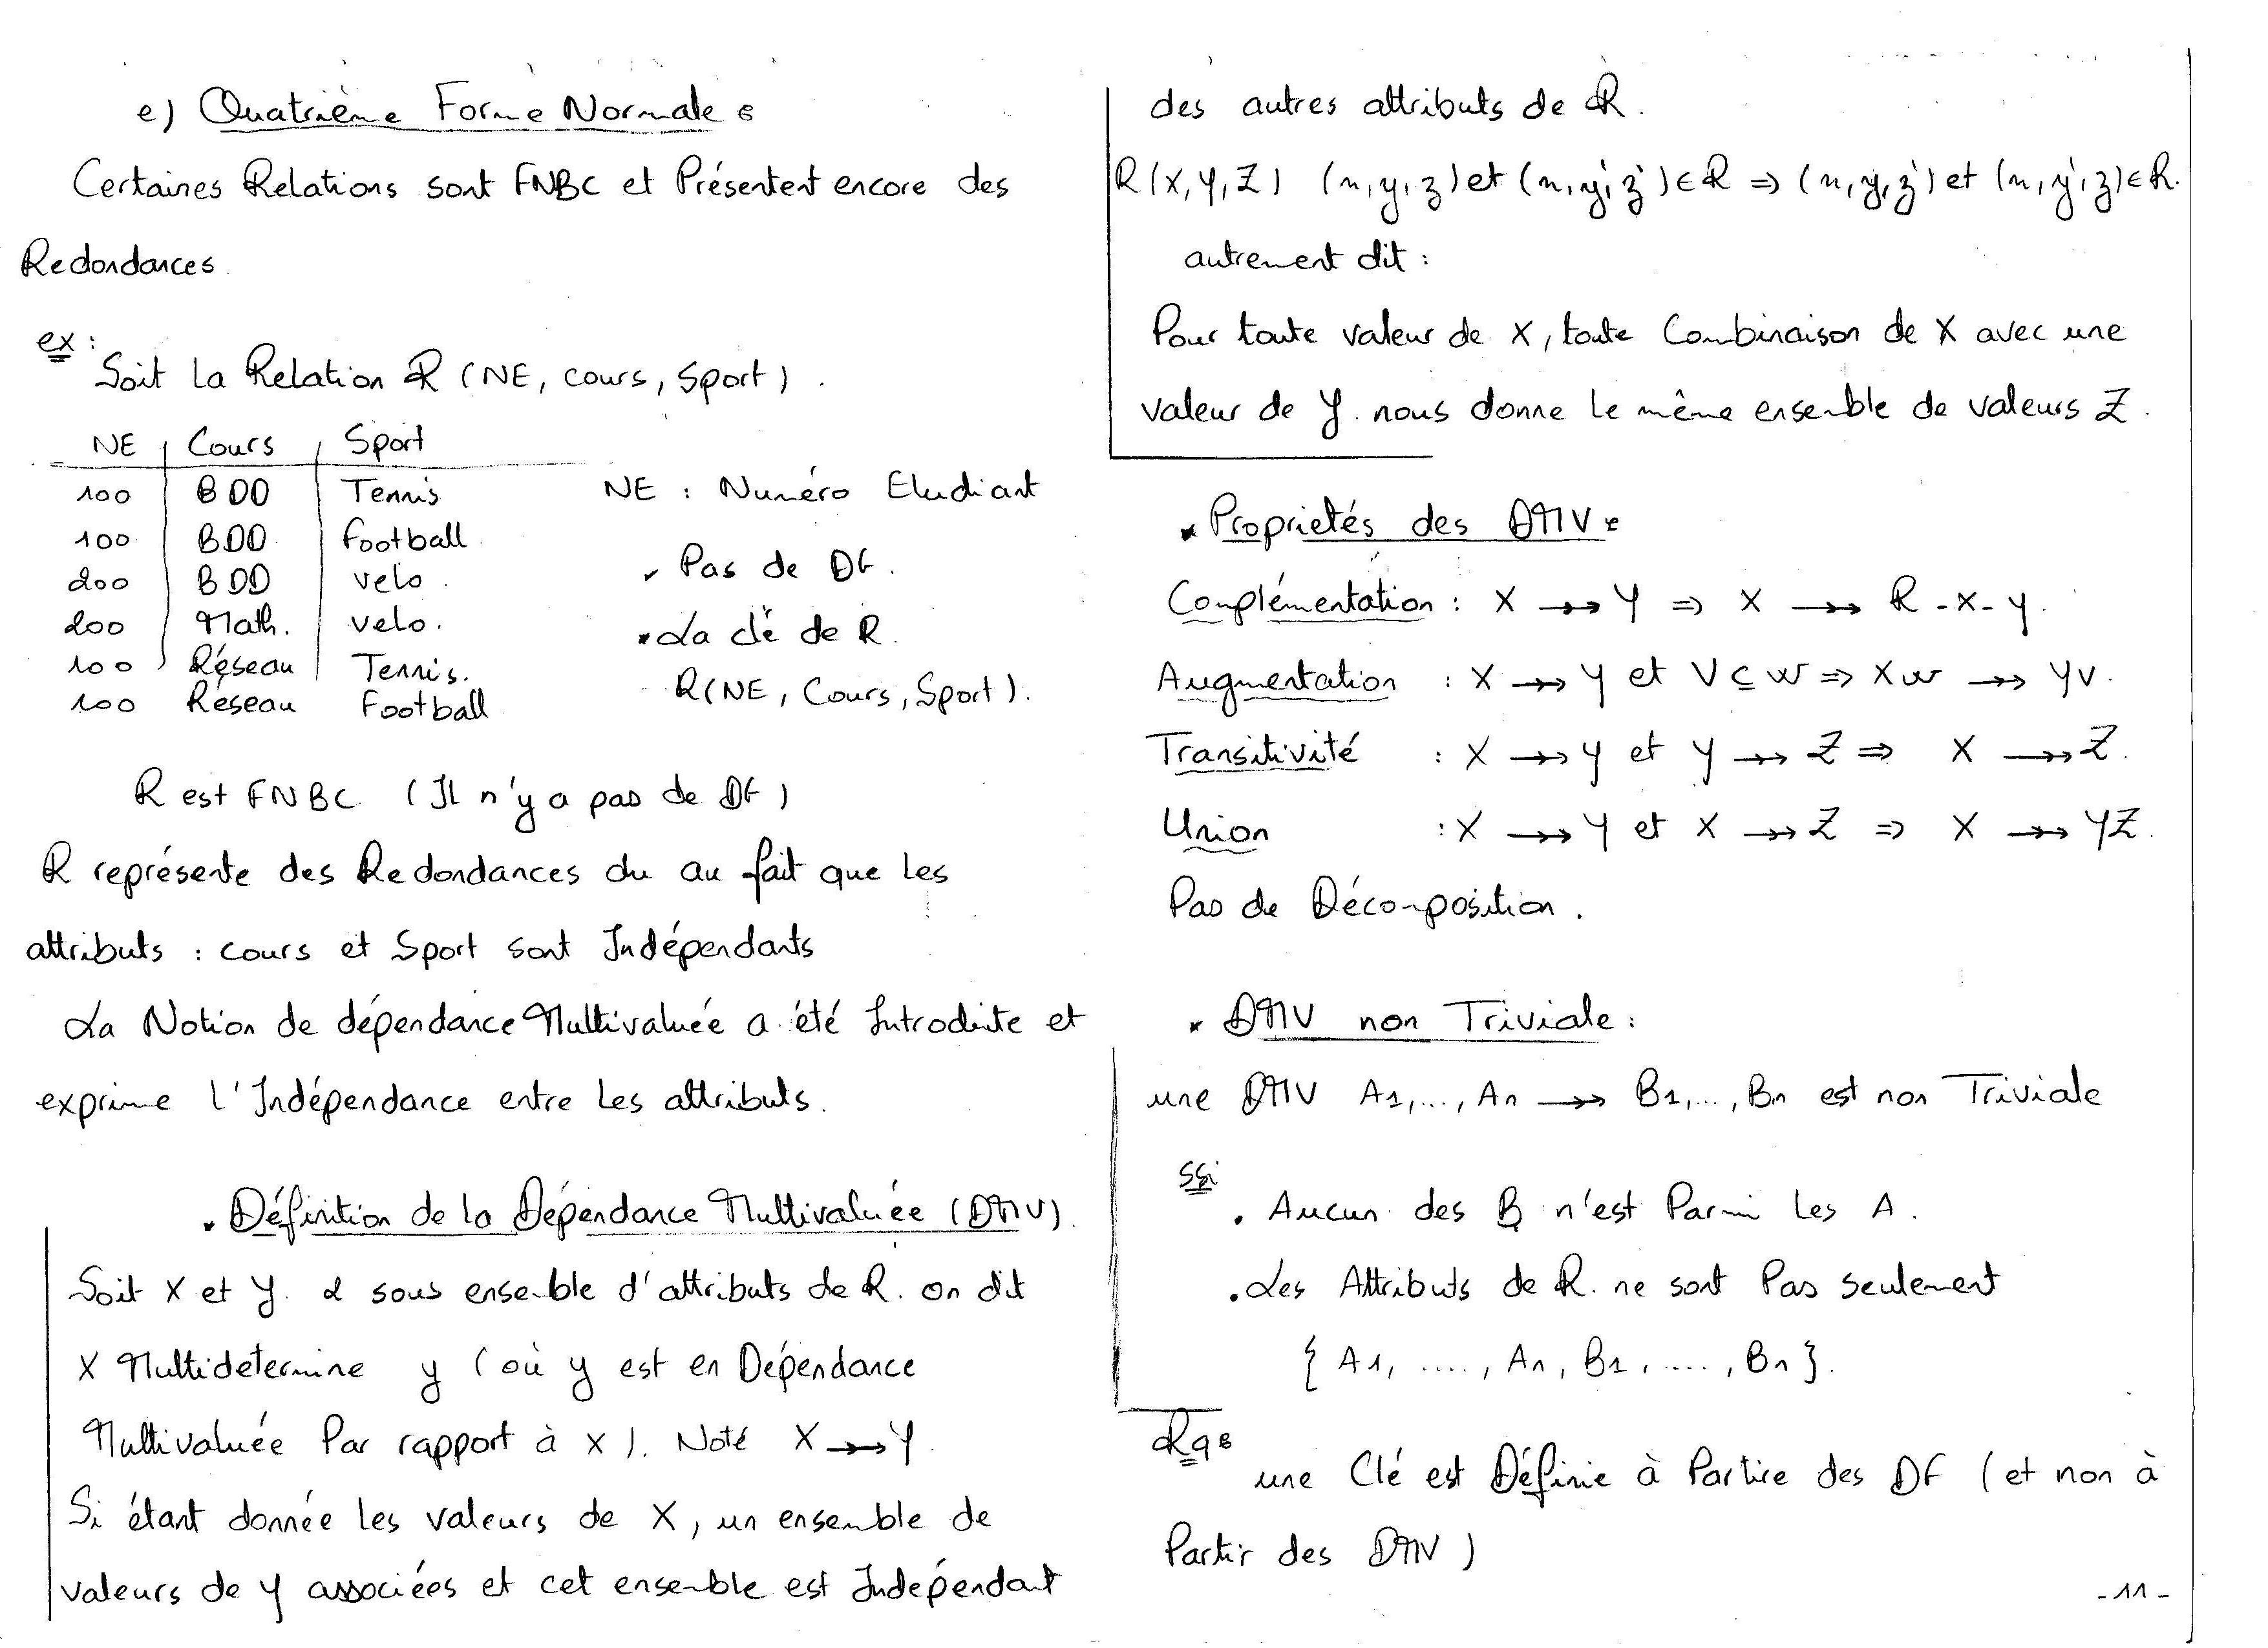 e) Quatrième Forme Normale :
Certaines Relations sont FNBC et Présentent encore des
Redondances.
ex :
Soit La Relation R (NE, cours, Sport).
NE | Cours | Sport
100 | BDD | Tennis
100 | BDD | Football
200 | BDD | velo.
200 | Math. | velo.
100 | Réseau | Tennis.
100 | Réseau | Football
NE : Numéro Etudiant
Pas de DF.
La clé de R.
R(NE, Cours, Sport).
R est FNBC. (Il n'y a pas de DF)
R représente des Redondances du au fait que Les
attributs : cours et Sport sont Indépendants
La Notion de dépendance Multivaluée a été Introduite et
exprime L'Indépendance entre Les attributs.
. Définition de la Dépendance Multivaluée (DMV).
Soit X et Y. 2 sous ensemble d'attributs de R. on dit
X Multidetermine y (où y est en Dépendance
Multivaluée Par rapport à X). Noté X →→ Y.
Si étant donnée Les valeurs de X, un ensemble de
valeurs de Y associées et cet ensemble est Indépendant
des autres attributs de R.
R(X,Y,Z) (x,y,z) et (x,y',z') ∈ R ⇒ (x,y,z') et (x,y',z) ∈ R.
autrement dit :
Pour toute valeur de X, toute Combinaison de X avec une
valeur de Y. nous donne Le même ensemble de valeurs Z.
* Proprietés des DMV :
Complémentation : X →→ Y ⇒ X →→ R - X - Y.
Augmentation : X →→ Y et V ⊆ W ⇒ XW →→ YV.
Transitivité : X →→ Y et Y →→ Z ⇒ X →→ Z.
Union : X →→ Y et X →→ Z ⇒ X →→ YZ.
Pas de Décomposition.
* DMV non Triviale :
une DMV A1,..., An →→ B1,..., Bn est non Triviale
ssi
. Aucun des B n'est Parmi Les A.
. Les Attributs de R. ne sont Pas seulement
{ A1, ...., An, B1, ...., Bn }.
Rq :
une Clé est Définie à Partire des DF (et non à
Partir des DMV)
-11-